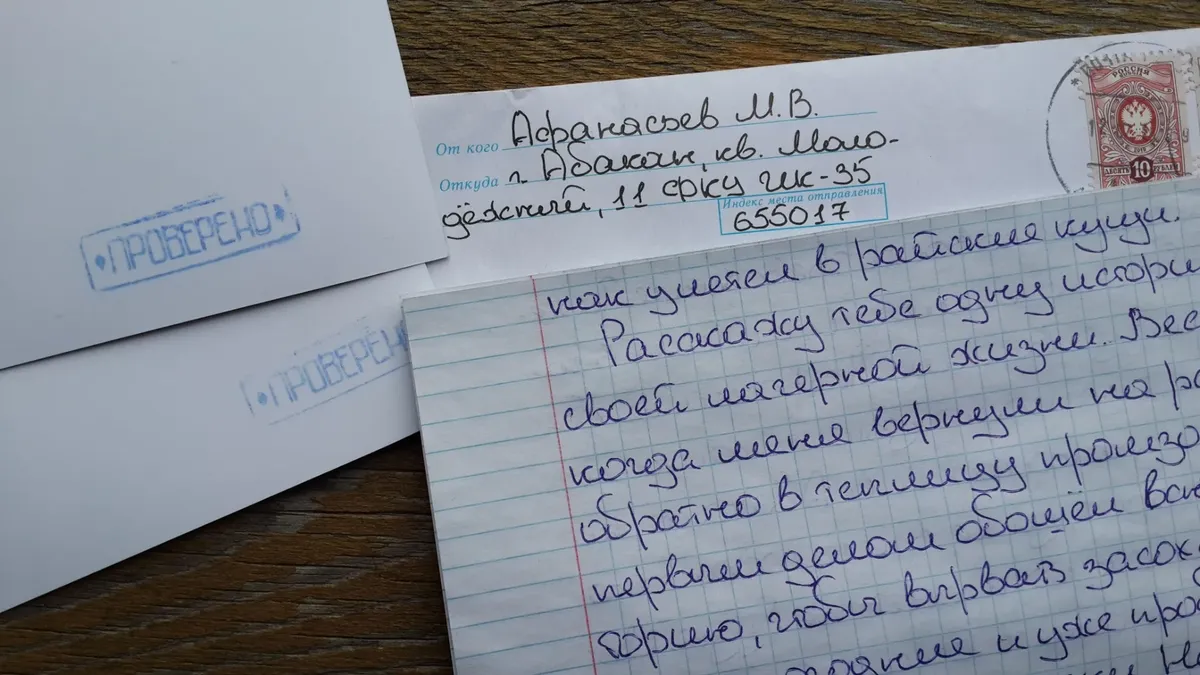 ПРОВЕРЕНО
ПРОВЕРЕНО
От кого Афанасьев М.В.
Откуда г. Абакан, кв. Моло-
дёжный, 11 ФКУ ИК-35
Индекс места отправления
655017
РОССИЯ
10
ДЕСЯТЬ РУБЛЕЙ
как улетел в райские кущи.
Расскажу тебе одну истори
своей лагерной жизни. Вес
когда меня вернули на ра
обратно в теплицу промзо
первым делом обошёл
, чтобы вырвать
и уже